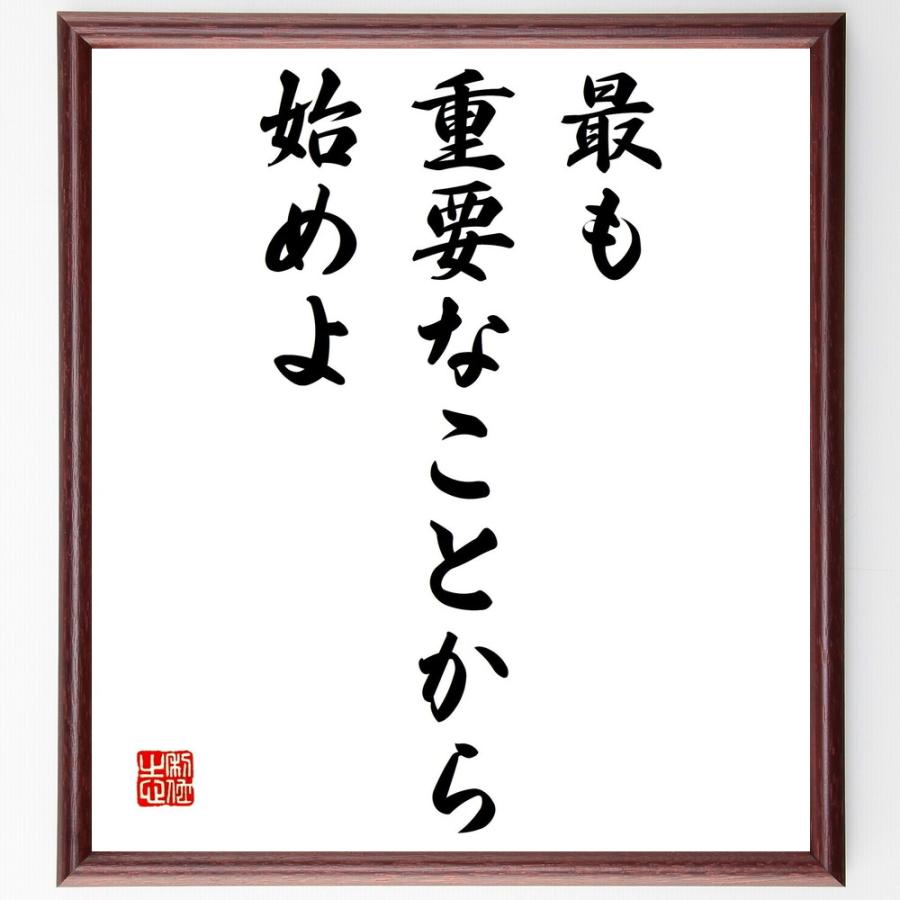 最も
重要なことから
始めよ